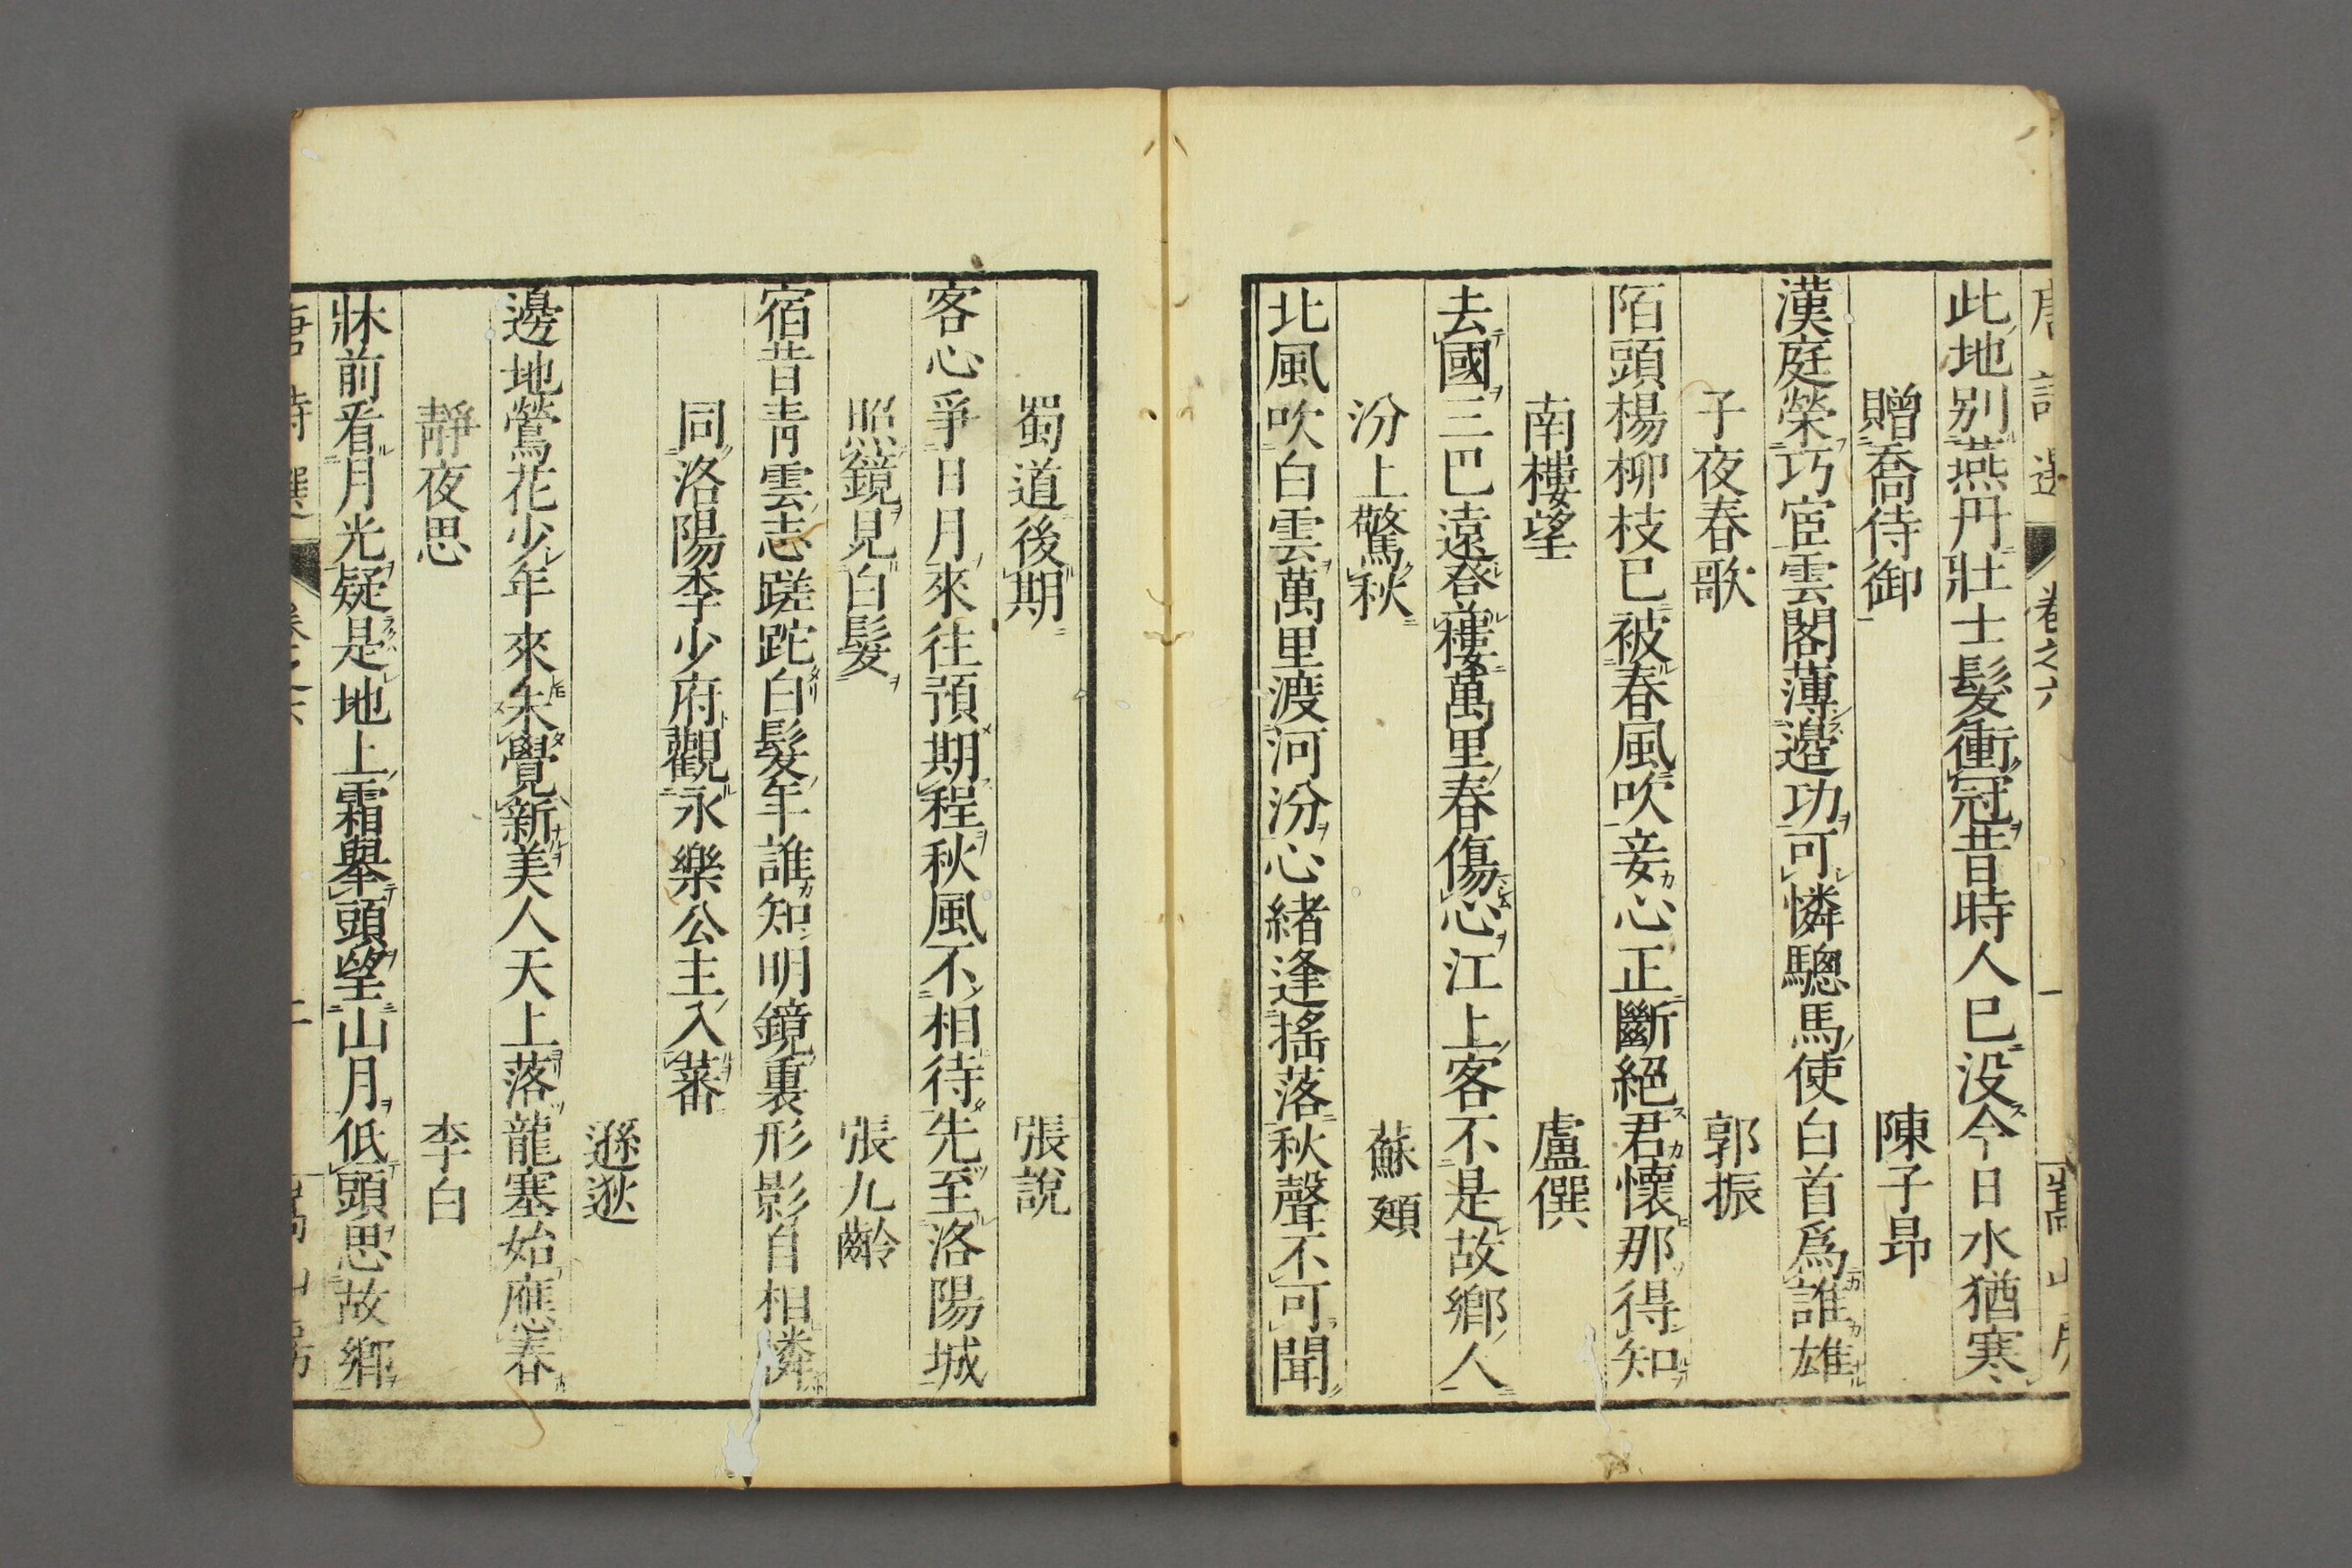 唐詩選 卷之六 一 嵩山房
此地別燕丹壯士髮衝冠昔時人已没今日水猶寒
贈喬侍御 陳子昂
漢庭榮巧宦雲閣薄邊功可憐驄馬使白首爲誰雄
子夜春歌 郭振
陌頭楊柳枝已被春風吹妾心正斷絕君懷那得知
南樓望 盧僎
去國三巴遠登樓萬里春傷心江上客不是故鄉人
汾上驚秋 蘇頲
北風吹白雲萬里渡河汾心緒逢搖落秋聲不可聞
蜀道後期 張說
客心爭日月來往預期程秋風不相待先至洛陽城
照鏡見白髮 張九齡
宿昔靑雲志蹉跎白髮年誰知明鏡裏形影自相憐
同洛陽李少府觀永樂公主入蕃
遜逖
邊地鶯花少年來未覺新美人天上落龍塞始應春
靜夜思 李白
牀前看月光疑是地上霜擧頭望山月低頭思故鄉
唐詩選 卷之六 二 嵩山房